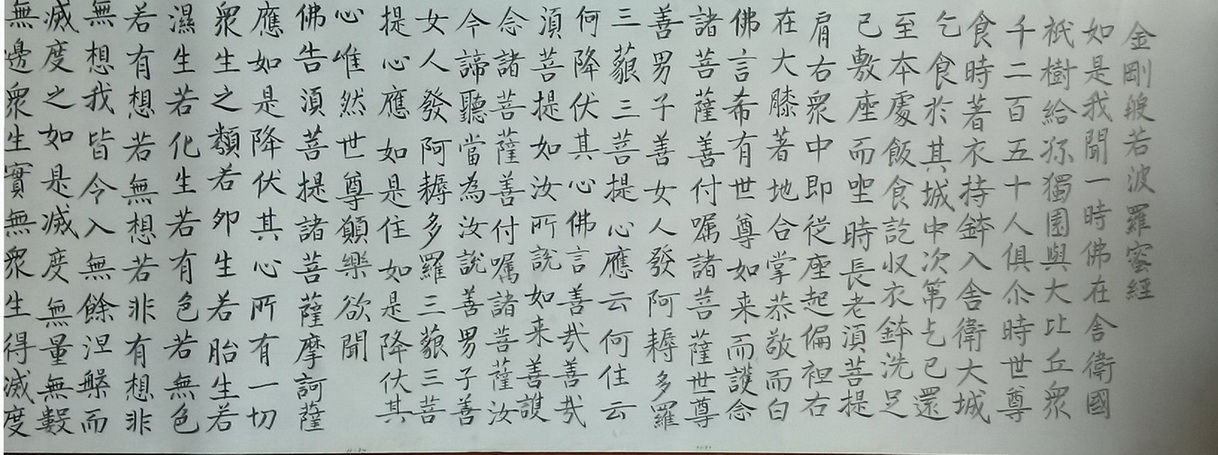 金剛般若波羅蜜經
如是我聞一時佛在舍衛國
祇樹給孤獨園與大比丘衆
千二百五十人俱尒時世尊
食時著衣持鉢入舍衛大城
乞食於其城中次第乞已還
至本處飯食訖収衣鉢洗足
已敷座而坐時長老須菩提
在大衆中即從座起偏袒右
肩右膝著地合掌恭敬而白
佛言希有世尊如来而護念
諸菩薩善付嘱諸菩薩世尊
善男子善女人發阿耨多羅
三藐三菩提心應云何住云
何降伏其心佛言善㢤善㢤
須菩提如汝所說如来善護
念諸菩薩善付嘱諸菩薩汝
今諦聽當為汝說善男子善
女人發阿耨多羅三藐三菩
提心應如是住如是降伏其
心唯然世尊願樂欲聞
佛告須菩提諸菩薩摩訶薩
應如是降伏其心所有一切
衆生之類若卵生若胎生若
濕生若化生若有色若無色
若有想若無想若非有想非
無想我皆令入無餘涅槃而
滅度之如是滅度無量無數
無邊衆生實無衆生得滅度